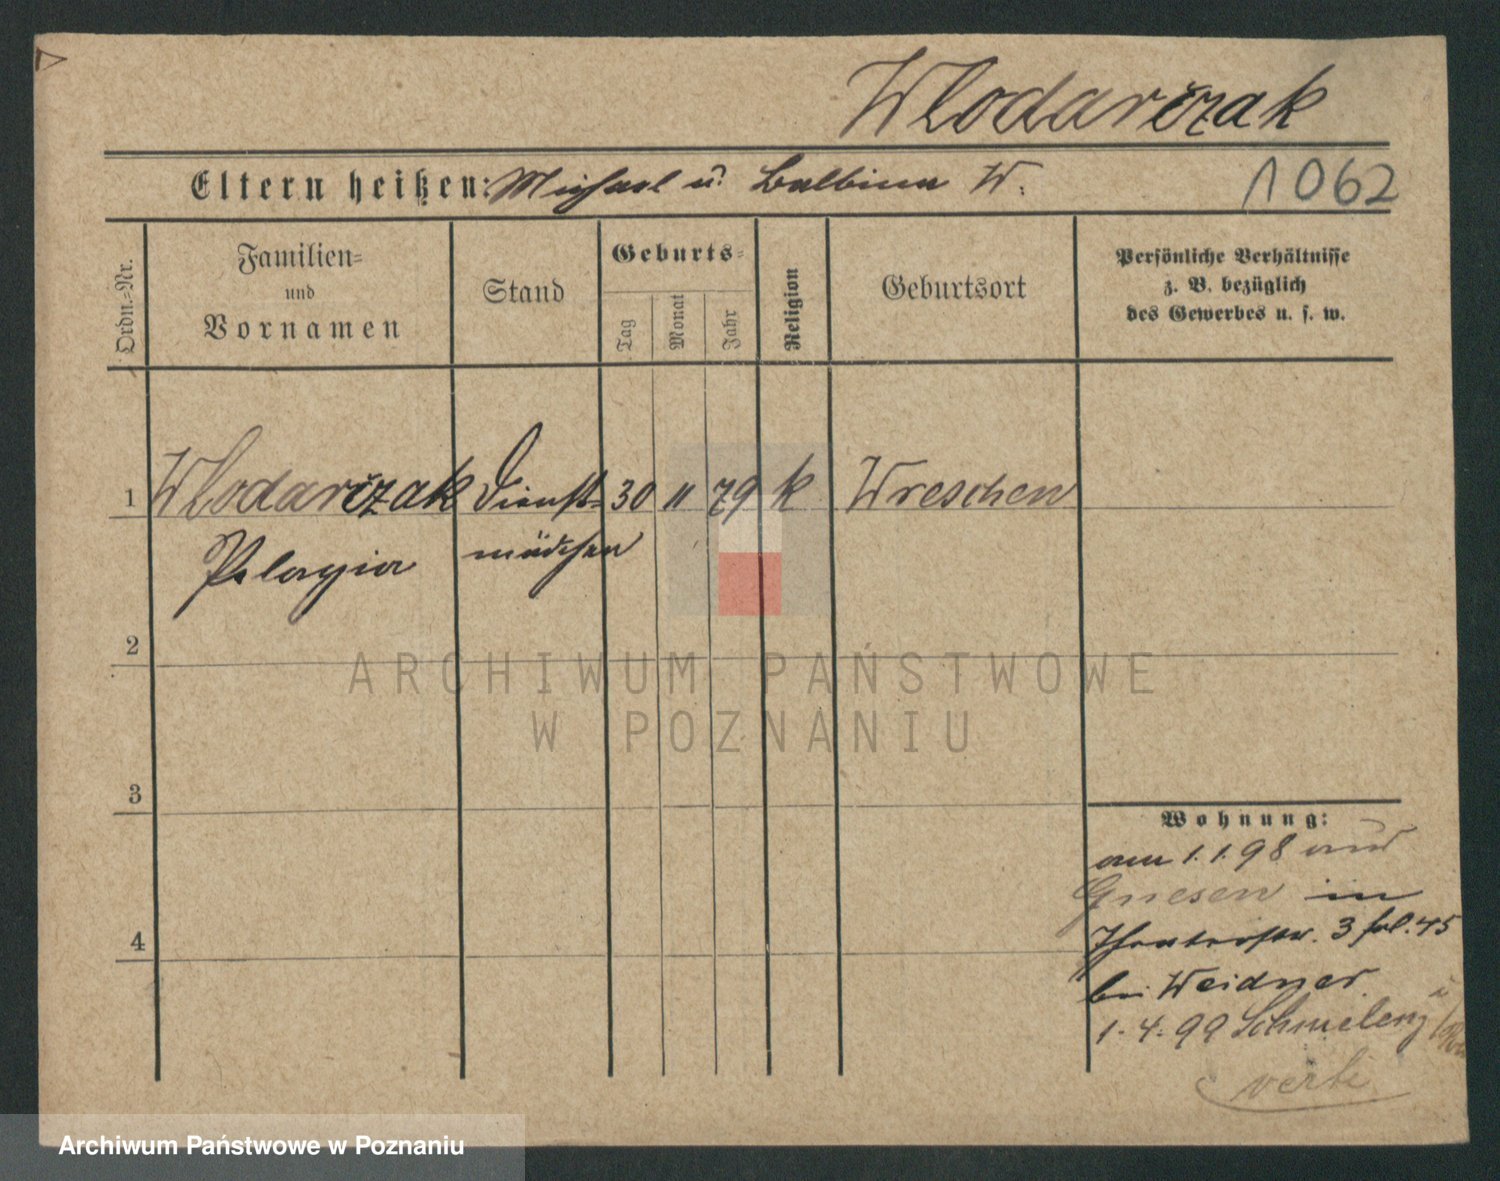 Wlodarczak
Eltern heißen: Michael u. Balbina W.
1062
Ordn.=Nr.
Familien=
und
Vornamen
Stand
Geburts=
Tag
Monat
Jahr
Religion
Geburtsort
Persönliche Verhältnisse
z. B. bezüglich
des Gewerbes u. s. w.
1 Wlodarczak Dienst= 30 11 79 k Wreschen
Pelagia mädchen
2
ARCHIWUM PAŃSTWOWE
W POZNANIU
3
4
Wohnung:
am 1.1.98 aus
Gnesen in
Theaterstr. 3 fol. 45
bei Weidner
1.4.99
verte
Archiwum Państwowe w Poznaniu